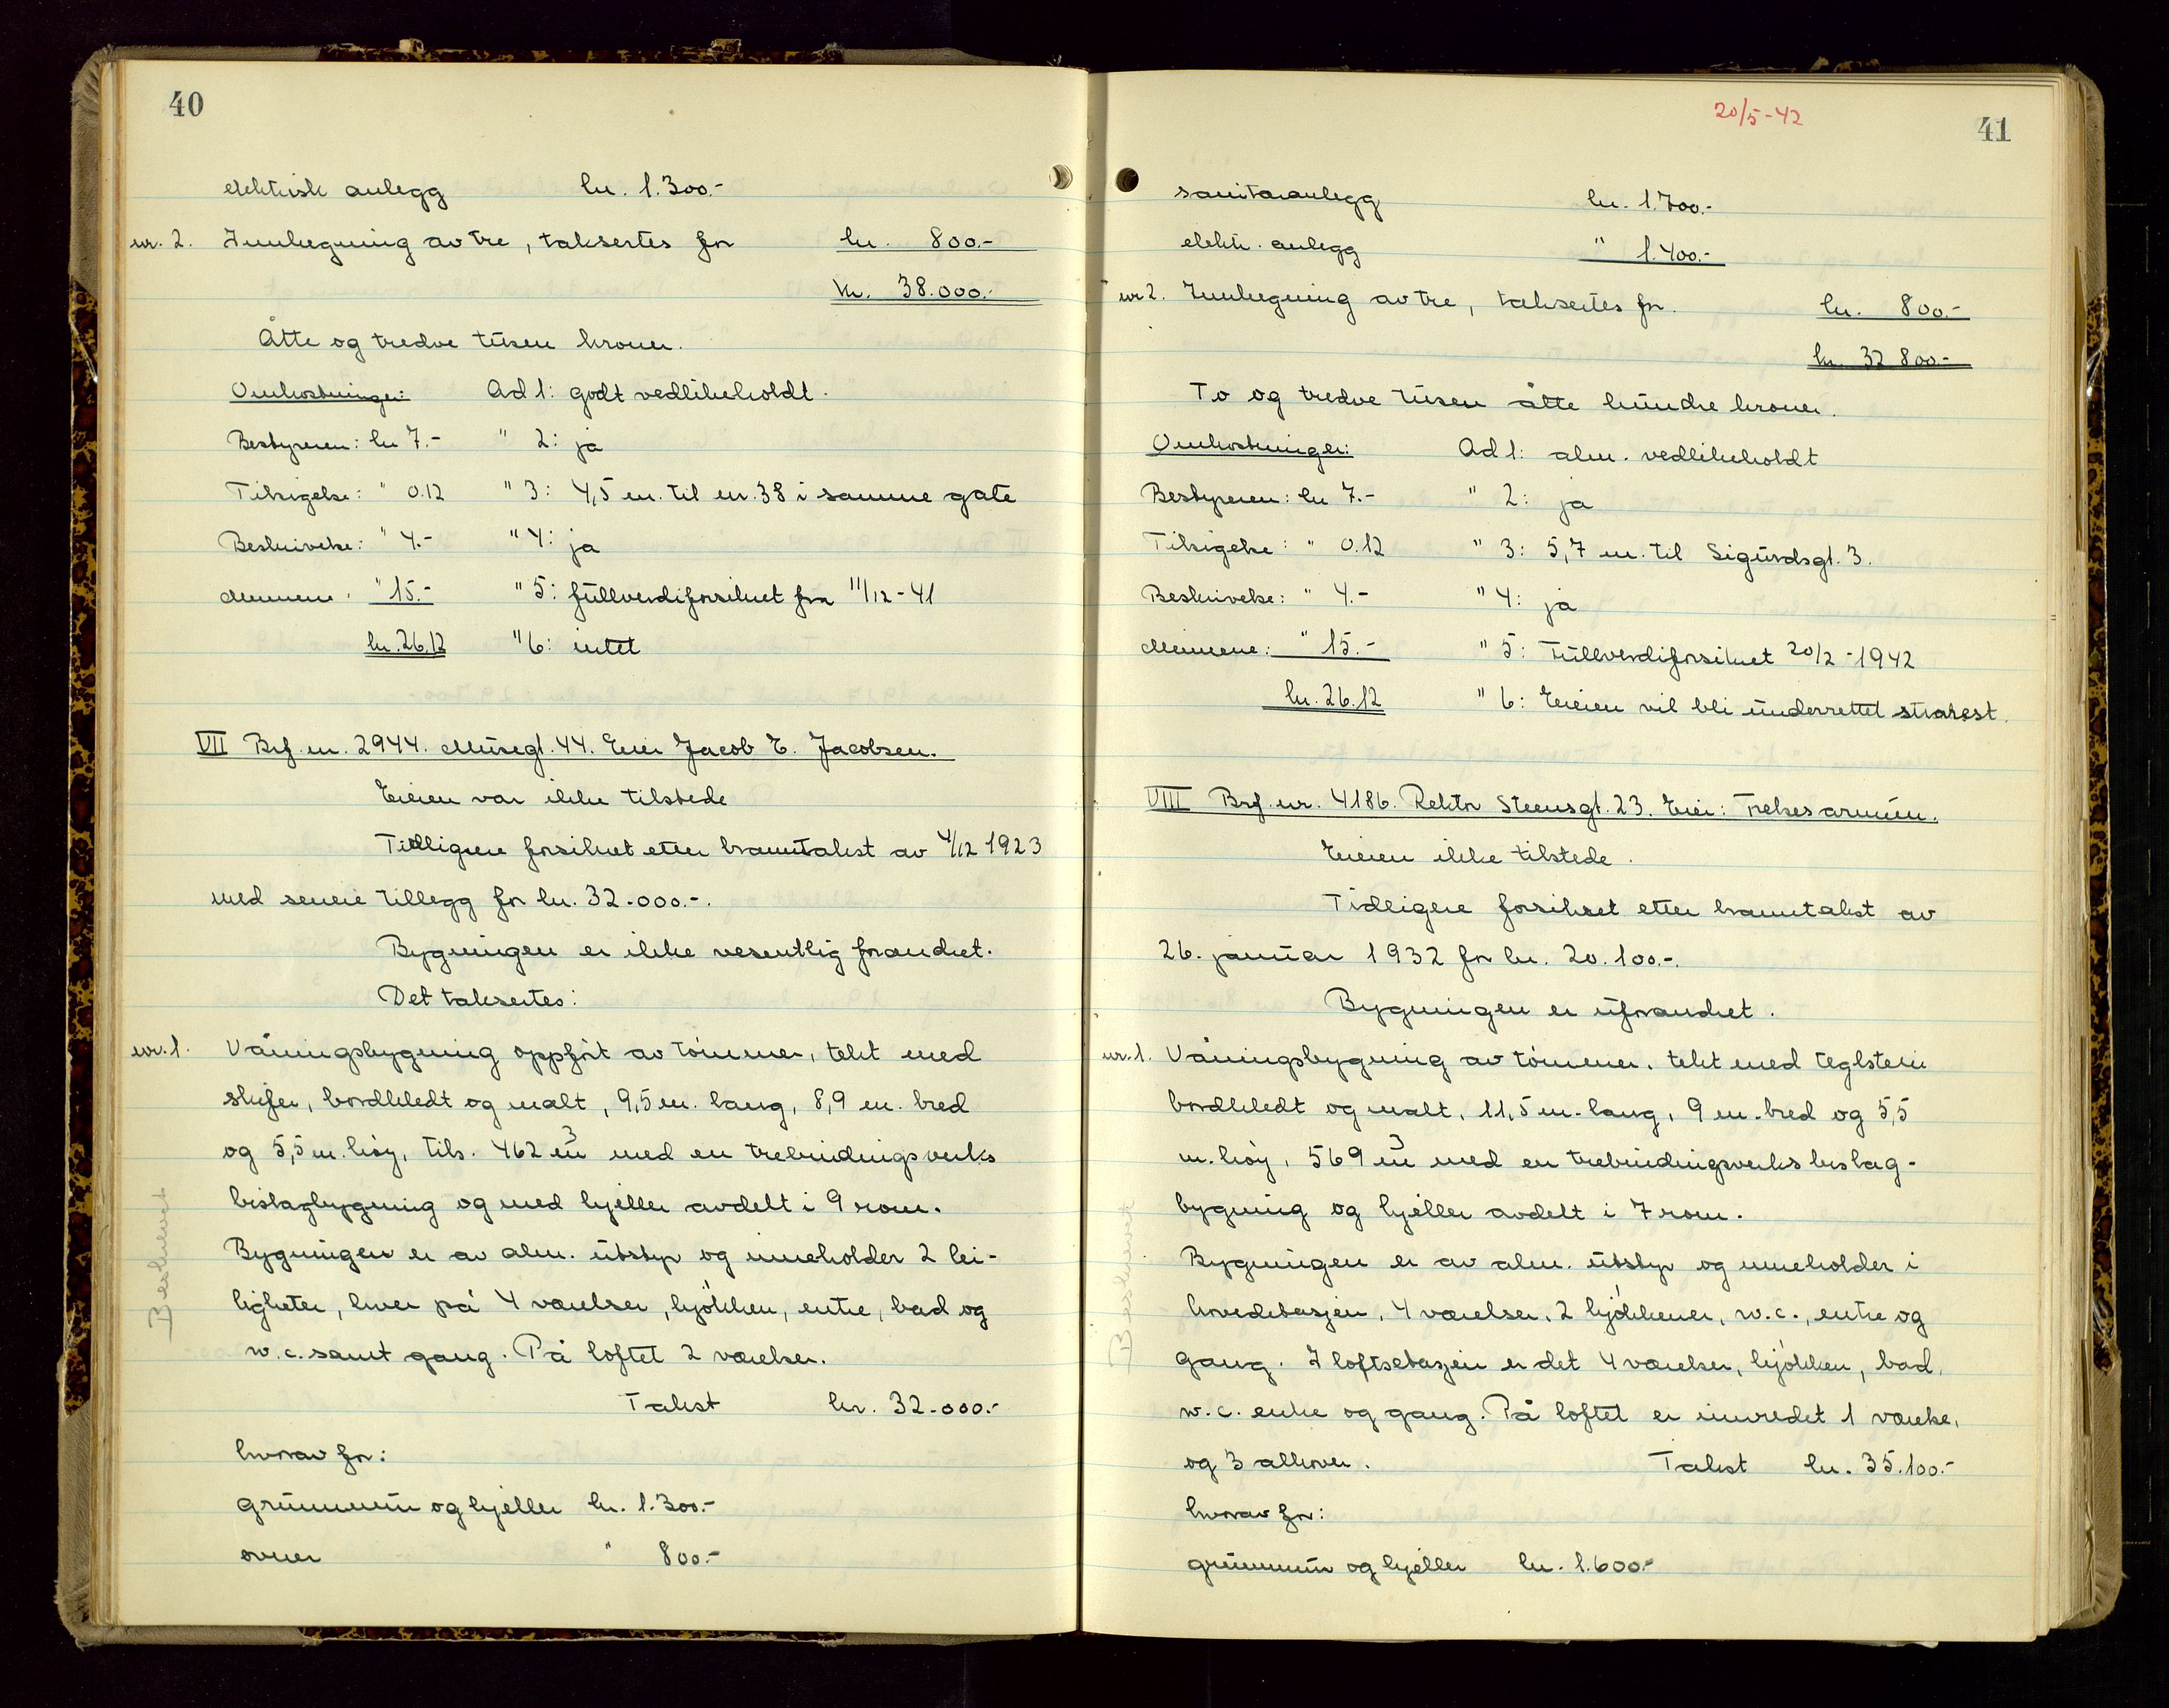 40
elektrisk anlegg kr. 1.300.-
nr. 2. Innhegning av tre, taksertes for kr. 800.-
kr. 38.000.-
Åtte og tredve tusen kroner.
Omkostninger: Ad 1: godt vedlikeholdt.
Bestyreren: kr 7.- " 2: ja
Tilsigelse: " 0.12 " 3: 4,5 m. til nr. 38 i samme gate
Beskrivelse: " 4.- " 4: ja
Mennene: " 15.- " 5: fullverdiforsikret fra 11/12-41
kr. 26.12 " 6: intet
VII Brf. nr. 2944. Musegt. 44. Eier Jacob E. Jacobsen.
Eieren var ikke tilstede
Tidligere forsikret etter branntakst av 4/12 1923
med senere tillegg for kr. 32.000.-.
Bygningen er ikke vesentlig forandret.
Det taksertes:
nr. 1. Våningsbygning oppført av tømmer, tekt med
skifer, bordkledt og malt, 9,5 m. lang, 8,9 m. bred
og 5,5 m. høy, tils. 462 m3 med en trebindingsverks
bislagbygning og med kjeller avdelt i 9 rom.
Bygningen er av alm. utstyr og inneholder 2 lei-
ligheter, hver på 4 værelser, kjøkken, entre, bad og
w.c. samt gang. På loftet 2 værelser.
Takst kr. 32.000.-
hvorav for:
grunnmur og kjeller kr. 1.300.-
ovner " 800.-
Beskrevet
20/5-42
41
sanitæranlegg kr. 1.700.-
elektr. anlegg " 1.400.-
nr 2. Innhegning av tre, taksertes for. kr. 800.-
kr. 32 800.-
To og tredve tusen åtte hundre kroner.
Omkostninger: Ad 1: alm. vedlikeholdt
Bestyreren: kr 7.- " 2: ja
Tilsigelse: " 0.12 " 3: 5,7 m. til Sigurdsgt. 3.
Beskrivelse: " 4.- " 4: ja
Mennene: " 15.- " 5: Fullverdiforsikret 20/2-1942
kr. 26.12 " 6: Eieren vil bli underrettet straksst.
VIII Brf. nr. 4186. Rektor Steensgt. 23. Eier: Frelsesarmeen.
Eieren ikke tilstede.
Tidligere forsikret etter branntakst av
26. januar 1932 for kr. 20.100.-.
Bygningen er uforandret.
nr. 1. Våningsbygning av tømmer, tekt med teglstein
bordkledt og malt, 11,5 m. lang, 9 m. bred og 5,5
m. høy, 569 m3 med en trebindingsverks bislag-
bygning og kjeller avdelt i 7 rom.
Bygningen er av alm. utstyr og inneholder i
hovedetasjen, 4 værelser, 2 kjøkkener, w.c., entre og
gang. I loftsetasjen er det 4 værelser, kjøkken, bad,
w.c. entre og gang. På loftet er innredet 1 værelse,
og 3 alkover. Takst kr. 35.100.-
hvorav for:
grunnmur og kjeller kr. 1.600.-
Beskrevet